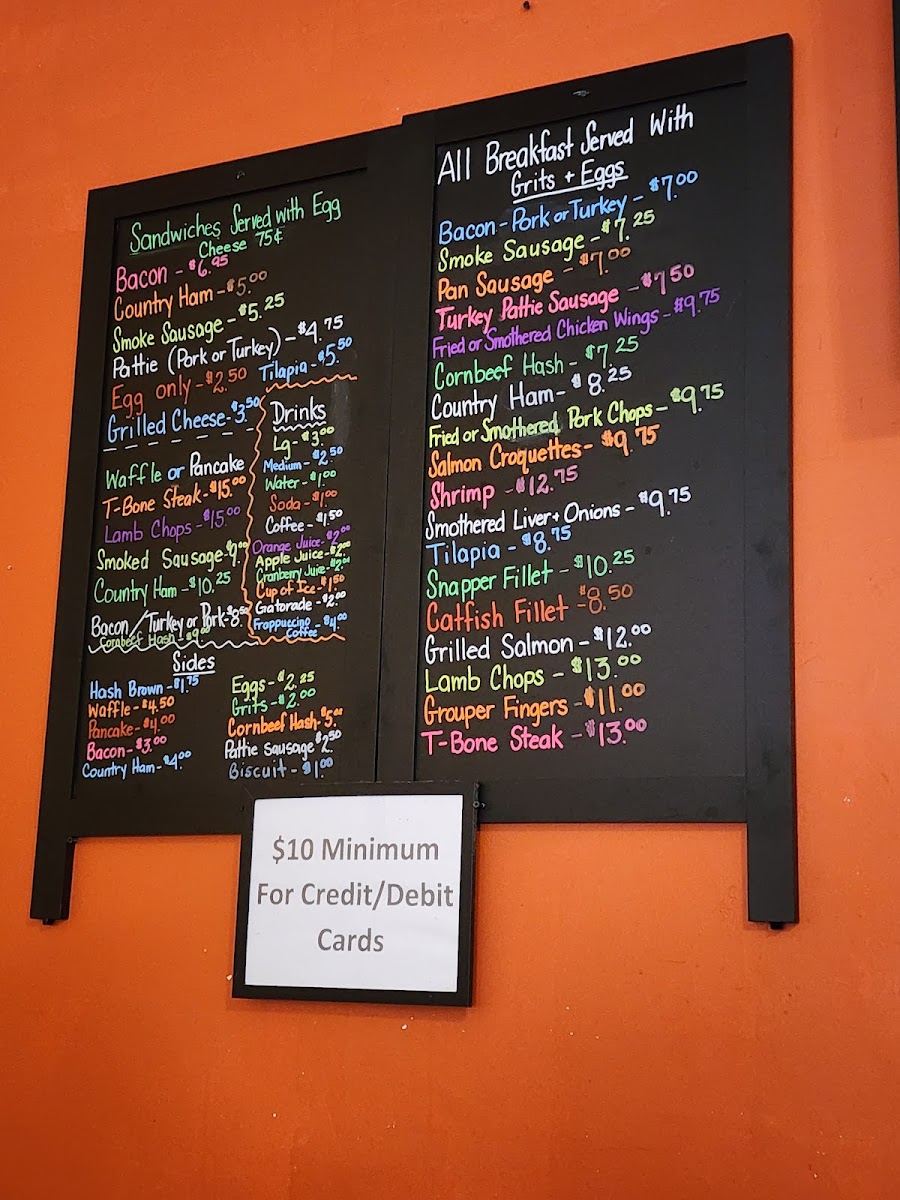 Sandwiches Served with Egg
Cheese 75¢
Bacon - $6.95
Country Ham - $5.00
Smoke Sausage - $5.25
Pattie (Pork or Turkey) - $4.75
Egg only - $2.50
Tilapia - $5.50
Grilled Cheese - $3.50
Waffle or Pancake
T-Bone Steak - $15.00
Lamb Chops - $15.00
Smoked Sausage - $9.00
Country Ham - $10.25
Bacon/Turkey or Pork - $8.50
Cornbeef Hash - $9.00
Drinks
Lg - $3.00
Medium - $2.50
Water - $1.00
Soda - $1.00
Coffee - $1.50
Orange Juice - $2.00
Apple Juice - $2.00
Cranberry Juice - $2.00
Cup of Ice - $1.50
Gatorade - $2.00
Frappuccino - $4.00
Coffee
Sides
Hash Brown - $1.75
Waffle - $4.50
Pancake - $4.00
Bacon - $3.00
Country Ham - $4.00
Eggs - $2.25
Grits - $2.00
Cornbeef Hash - $5.00
Pattie Sausage $2.50
Biscuit - $1.00
All Breakfast Served With
Grits + Eggs
Bacon - Pork or Turkey - $7.00
Smoke Sausage - $7.25
Pan Sausage - $7.00
Turkey Pattie Sausage - $7.50
Fried or Smothered Chicken Wings - $9.75
Cornbeef Hash - $7.25
Country Ham - $8.25
Fried or Smothered Pork Chops - $9.75
Salmon Croquettes - $9.75
Shrimp - $12.75
Smothered Liver + Onions - $9.75
Tilapia - $8.75
Snapper Fillet - $10.25
Catfish Fillet - $8.50
Grilled Salmon - $12.00
Lamb Chops - $13.00
Grouper Fingers - $11.00
T-Bone Steak - $13.00
$10 Minimum
For Credit/Debit
Cards